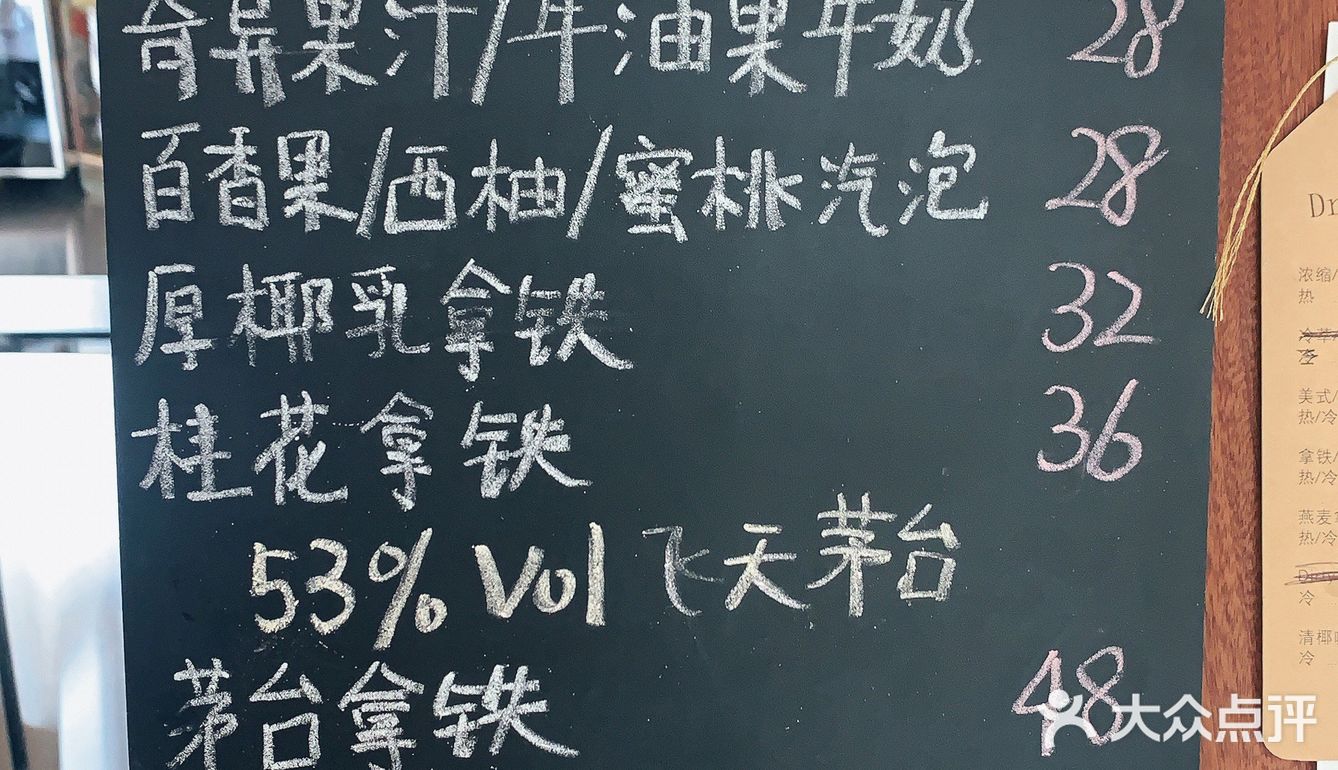 奇异果汁/牛油果牛奶 28
百香果/西柚/蜜桃汽泡 28
厚椰乳拿铁 32
桂花拿铁 36
53% Vol 飞天茅台
茅台拿铁 48
大众点评
Dr
浓缩/
热
美式/
热/冷
拿铁/
热/冷
燕麦
热/冷
冷
清椰
冷